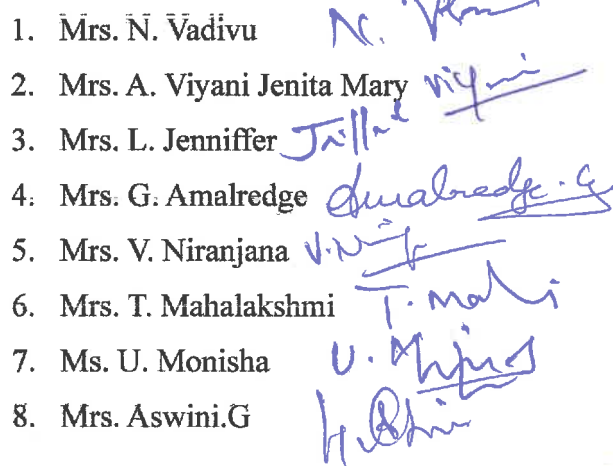 1. Mrs. N. Vadivu N.
2. Mrs. A. Viyani Jenita Mary Viyani
3. Mrs. L. Jenniffer
4. Mrs. G. Amalredge Amalredge. G
5. Mrs. V. Niranjana V.
6. Mrs. T. Mahalakshmi T.
7. Ms. U. Monisha U.
8. Mrs. Aswini.G